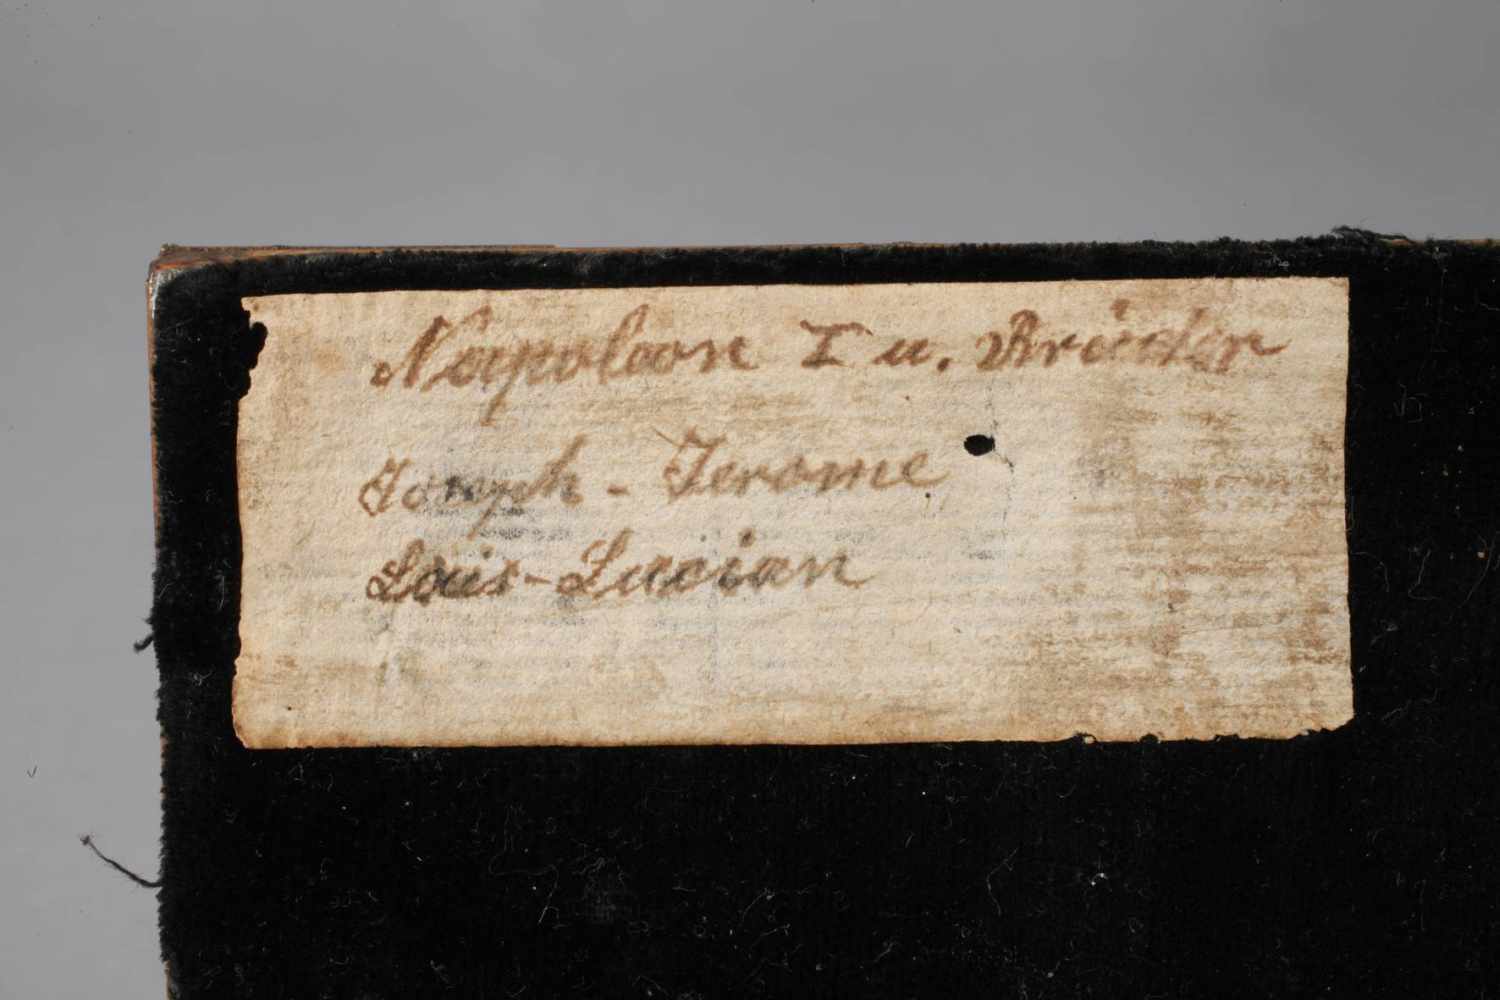 Napoleon I u. Brüder
Joseph - Jerome
Louis - Lucian